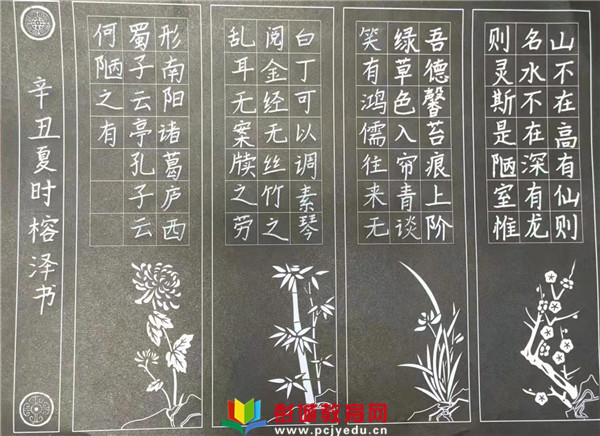 山不在高有仙则
名水不在深有龙
则灵斯是陋室惟
吾德馨苔痕上阶
绿草色入帘青谈
笑有鸿儒往来无
白丁可以调素琴
阅金经无丝竹之
乱耳无案牍之劳
形南阳诸葛庐西
蜀子云亭孔子云
何陋之有
辛丑夏时榕泽书
彭城教育网
www.pcjyedu.cn